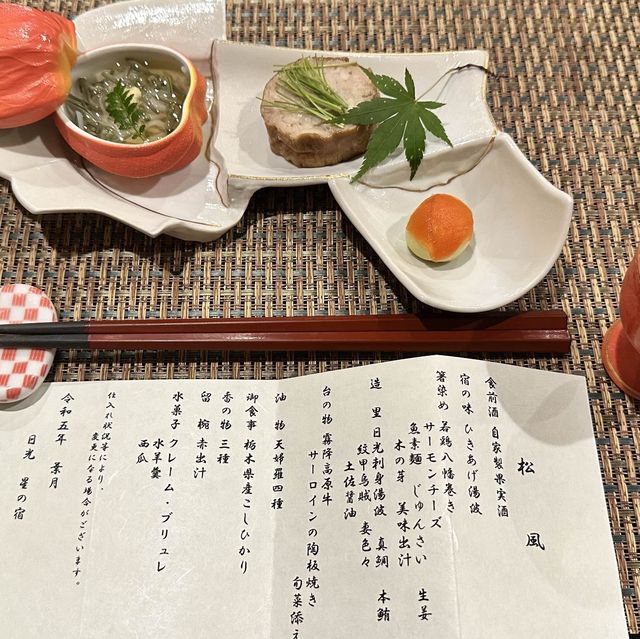 松風
食前酒 自家製果実酒
宿の味 ひきあげ湯波
箸染め 若鶏八幡巻き
サーモンチーズ 生姜
魚素麺 じゅんさい
木の芽 美味出汁
造里 日光刺身湯波 真鯛 本鮪
紋甲烏賊 妻色々
土佐醤油
台の物 霧降高原牛
サーロインの陶板焼き
旬菜添え
油物 天婦羅四種
御食事 栃木県産こしひかり
香の物 三種
留椀 赤出汁
水菓子 クレーム・ブリュレ
水羊羹
西瓜
仕入れ状況等により、
変更になる場合がございます。
令和五年 葉月
日光 星の宿